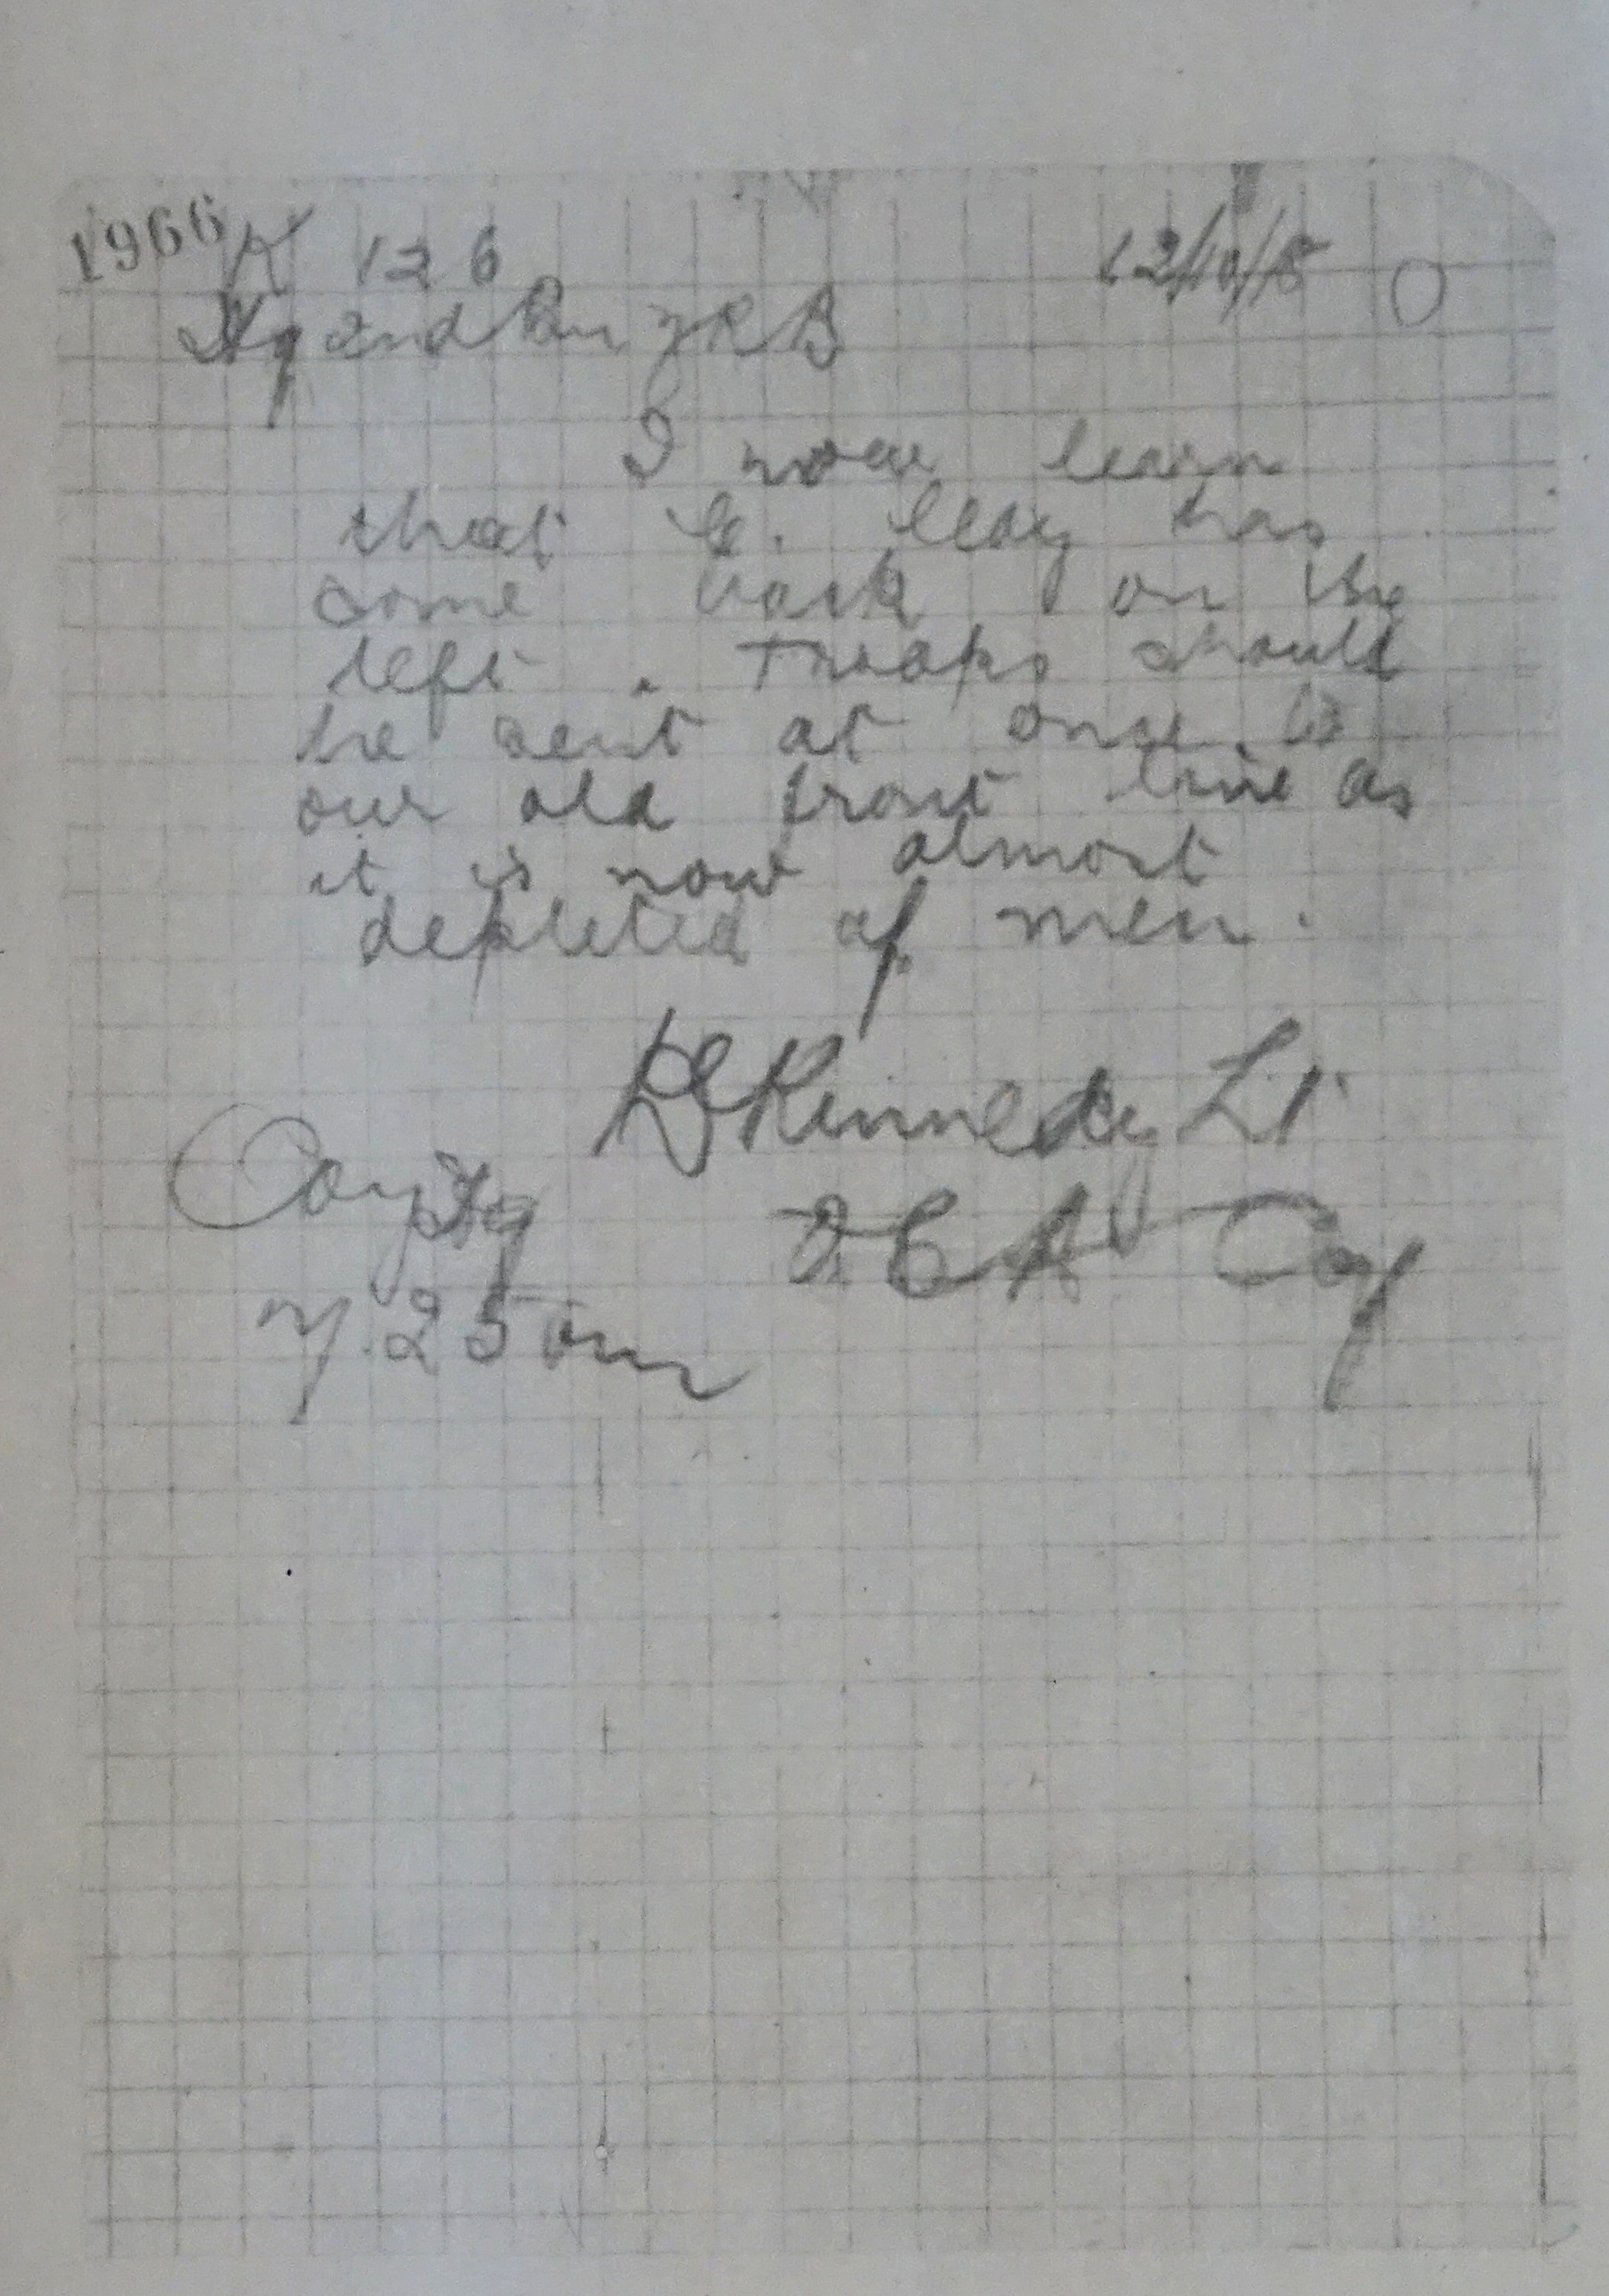 1966 K 126 12/10/15
Hq 2nd Bn
I now learn
that C. Coy has
come back on the
left. Troops should
be sent at once to
our old front line as
it is now almost
depleted of men.
Kennedy Lt
Coy Hq O C A Coy
7.25 am